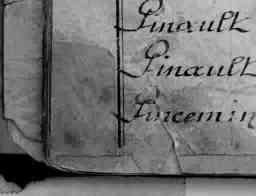 Pinault
Pinault
Pincemin